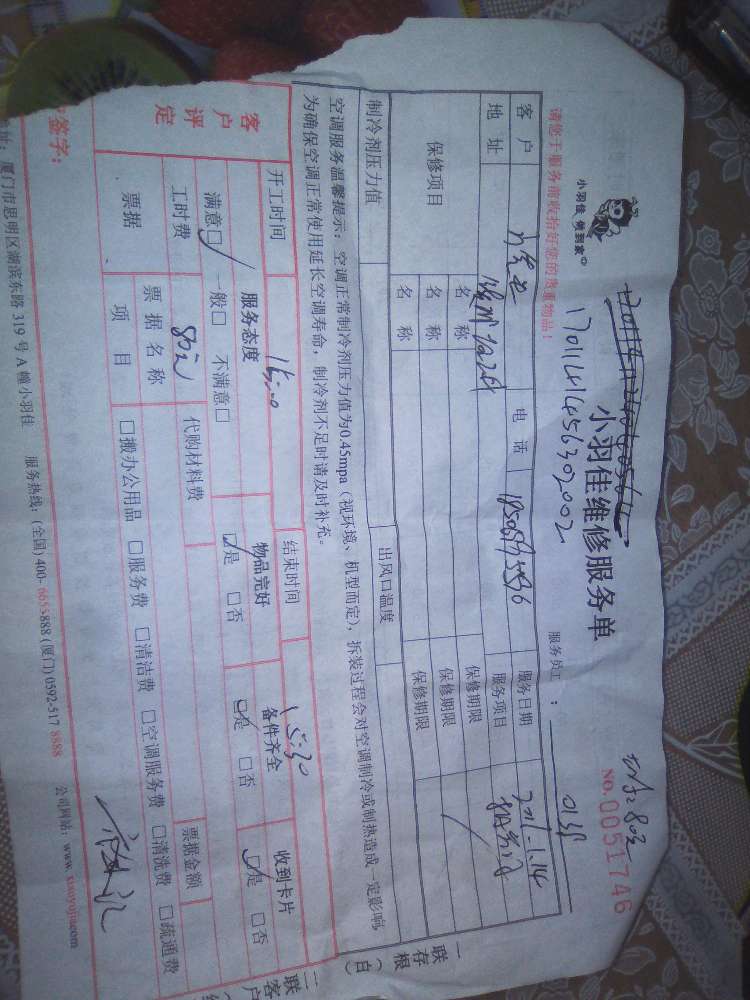 小羽佳 做到家
小羽佳维修服务单
1701141456302002
NO.0051746
请您于服务前收拾好您的贵重物品!
服务员工:
客户
电话
服务日期 2017.1.14
地址
服务项目
保修项目
名称
保修期限
名称
保修期限
名称
保修期限
制冷剂压力值
出风口温度
空调服务温馨提示:空调正常制冷剂压力值为0.45mpa(视环境、机型而定),拆装过程会对空调制冷或制热造成一定影响
为确保空调正常使用延长空调寿命,制冷剂不足时请及时补充。
开工时间
结束时间 15:30
客户评定
服务态度
物品完好
备件齐全
收到卡片
满意☑ 一般□ 不满意□
☑是 □否
☑是 □否
☑是 □否
工时费 80元
代购材料费
票据金额
票据
票据名称
项目
□搬办公用品 □服务费 □清洁费 □空调服务费 □清洗费 □疏通费
签字:
厦门市思明区湖滨东路319号A幢小羽佳 服务热线:(全国)400-6655888(厦门)0592-5178888 公司网站:www.xiaoyujia.com
一联存根(白)
二联客户